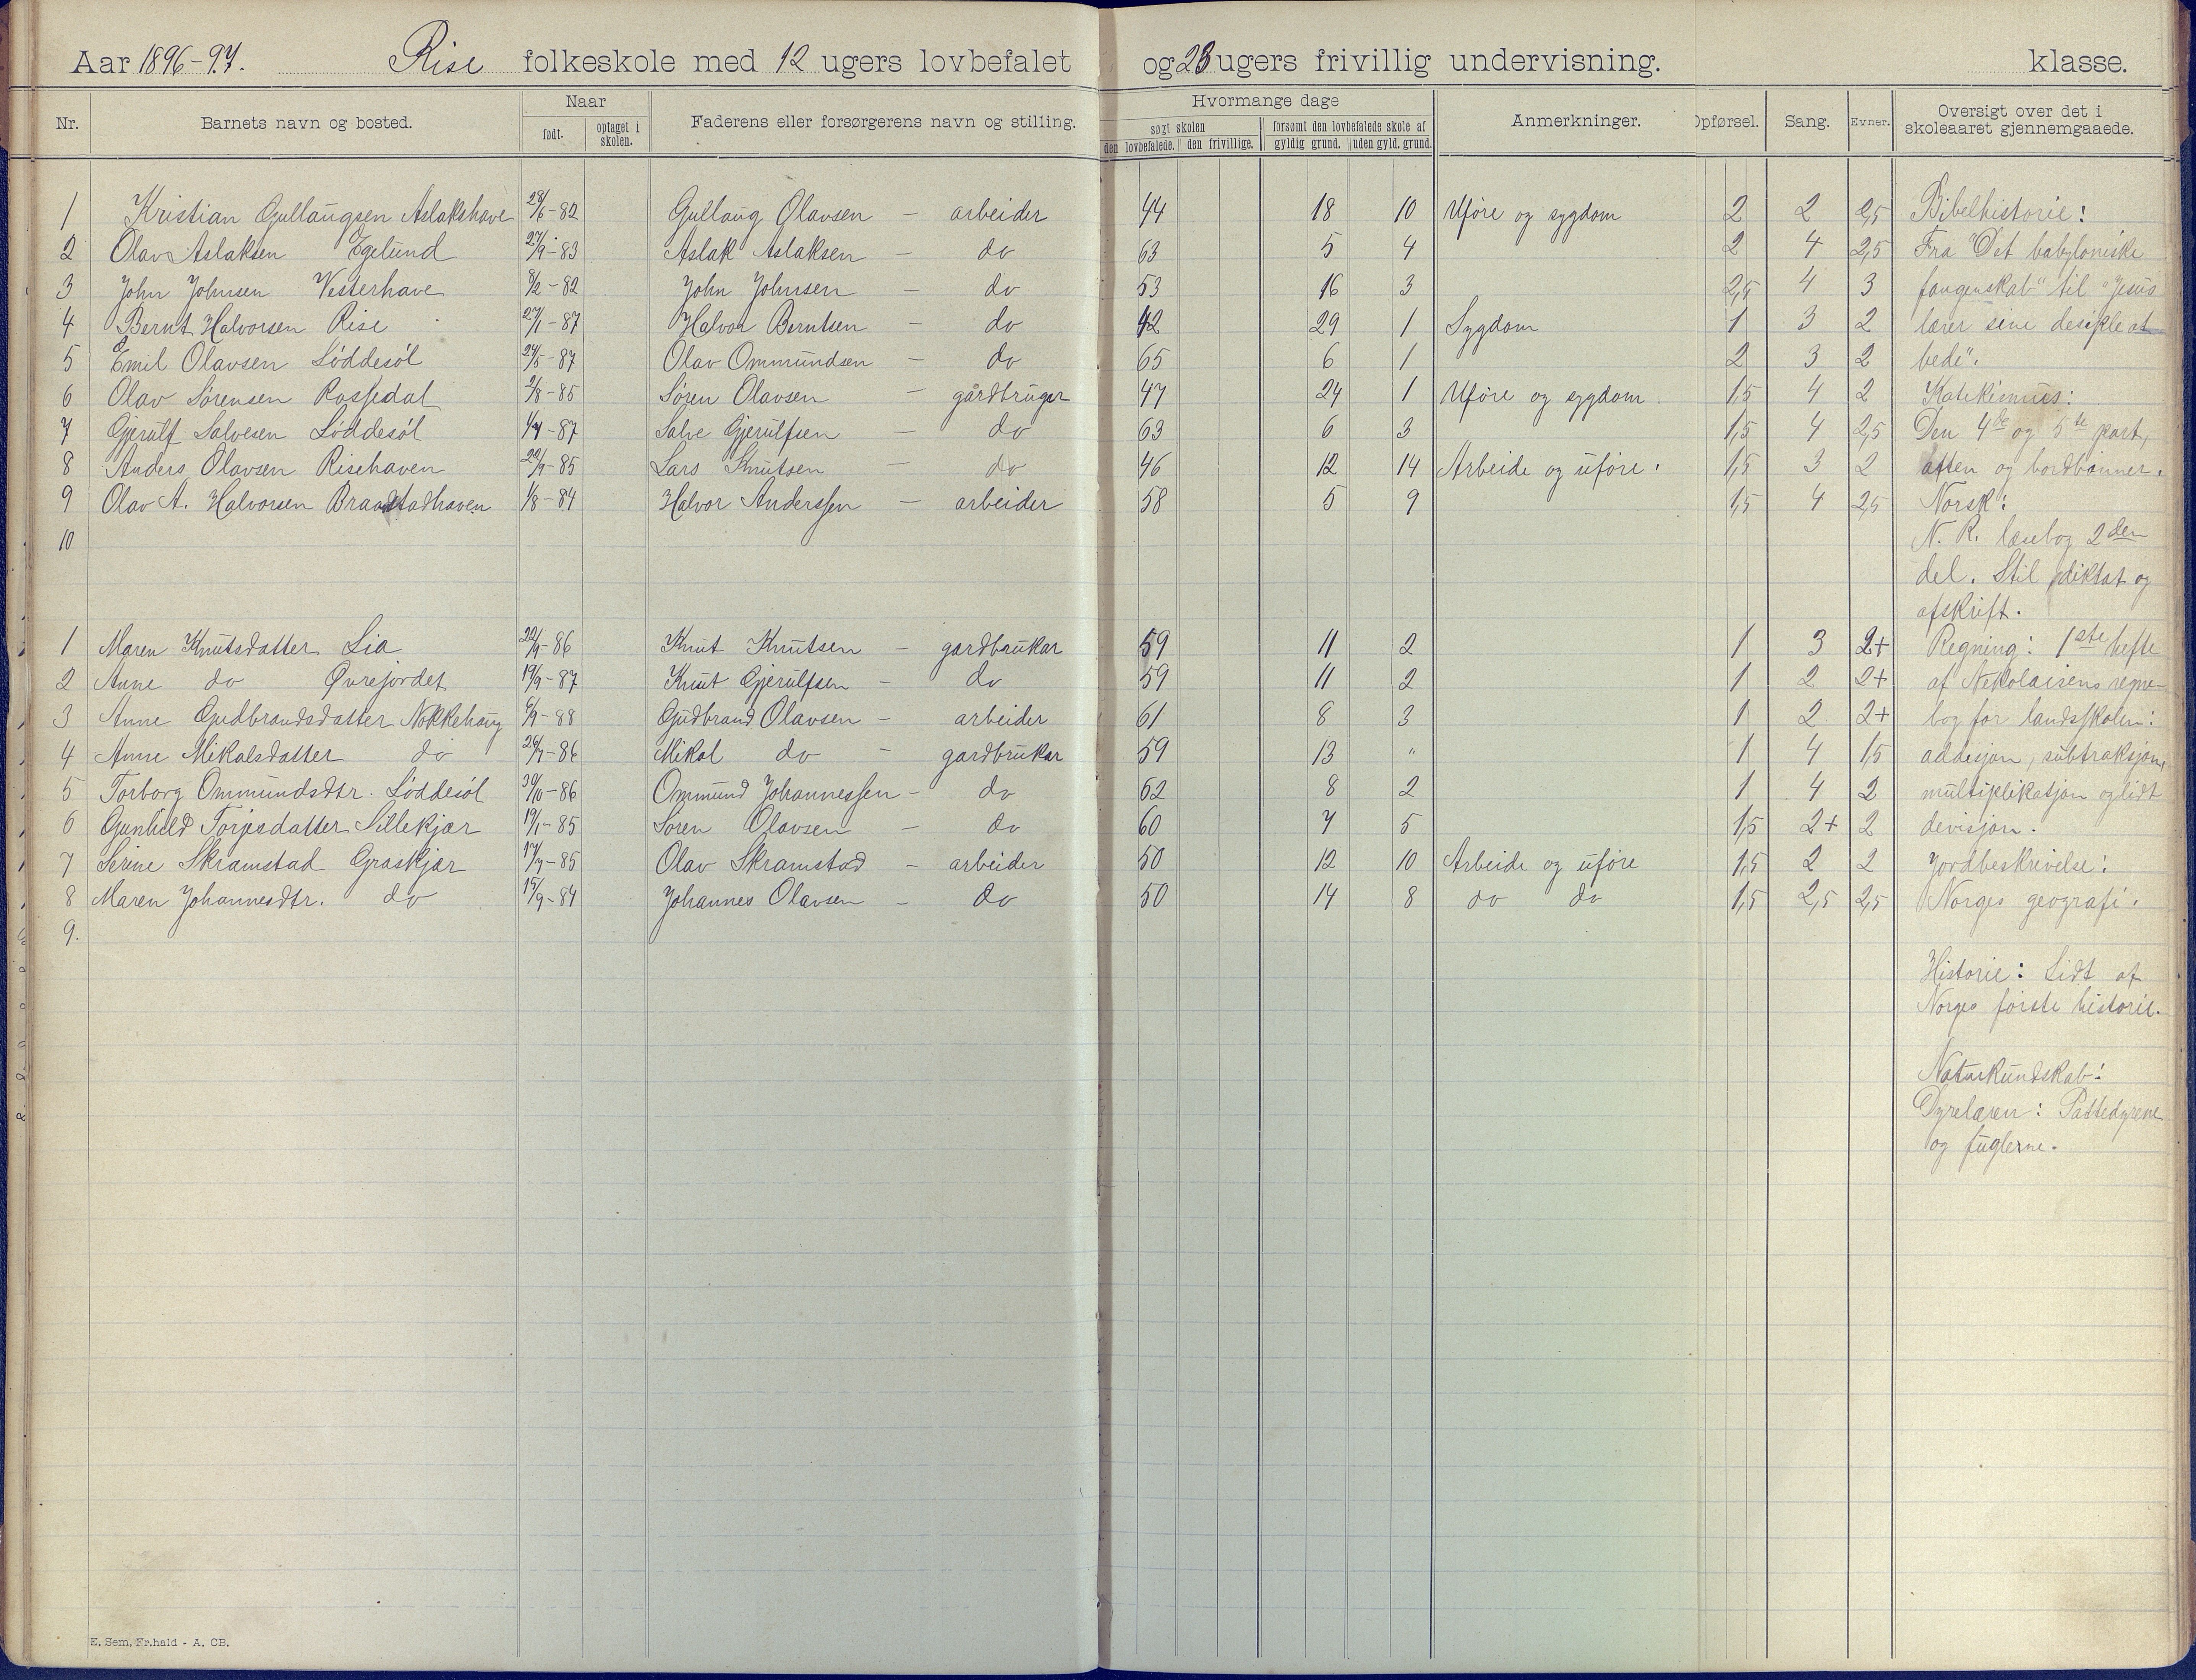 Aar 1896-97. Rise folkeskole med 12 ugers lovbefalet og 23 ugers frivillig undervisning. klasse.
Nr. Barnets navn og bosted. Naar født. optaget i skolen. Faderens eller forsørgerens navn og stilling. Hvormange dage søgt skolen den lovbefalede. den frivillige. forsømt den lovbefalede skole af gyldig grund. uden gyld. grund. Anmerkninger. Opførsel. Sang. Evner. Oversigt over det i skoleaaret gjennemgaaede.
1 Kristian Gullaugsen Aslakshave 28/6-82 Gullaug Olavsen - arbeider 44 18 10 Uføre og sygdom 2 2 2,5 Bibelhistorie:
2 Olav Aslaksen Egelund 27/9-83 Aslak Aslaksen - do 63 5 4 2 4 2,5 Fra "Det babyloniske
3 John Johnsen Vesterhave 8/2-82 John Johnsen - do 53 16 3 2,5 4 3 fangenskab" til "Jesus
4 Bernt Halvorsen Rise 27/1-87 Halvor Berntsen - do 42 29 1 Sygdom 1 3 2 lærer sine desiple at
5 Emil Olavsen Løddesøl 24/5-87 Olav Ommundsen - do 65 6 1 2 3 2 bede".
6 Olav Sørensen Rossedal 2/8-85 Søren Olavsen - gårdbruger 47 24 1 Uføre og sygdom. 1,5 4 2 Katekismus:
7 Gjerulf Salvesen Løddesøl 4/4-87 Salve Gjerulfsen - do 63 6 3 1,5 4 2,5 Den 4de og 5te part,
8 Anders Olavsen Risehaven 22/9-85 Lars Knutsen - do 46 12 14 Arbeide og uføre. 1,5 3 2 aften og bordbønner.
9 Olav A. Halvorsen Braastadhaven 1/8-84 Halvor Anderssen - arbeider 58 5 9 1,5 4 2,5 Norsk:
10 N. R. læsebog 2den
del. Stil, diktat og
afskrift.
1 Maren Knutsdatter Lia 22/9-86 Knut Knutsen - gardbrukar 59 11 2 1 3 2+ Regning: 1ste hefte
2 Anne do Øvrejordet 19/9-87 Knut Gjerulfsen - do 59 11 2 1 2 2+ af Nekolaisens regne-
3 Anne Gudbrandsdatter Nokkehaug 6/9-88 Gudbrand Olavsen - arbeider 61 8 3 1 2 2+ bog for landsskolen:
4 Anne Mikalsdatter do 26/7-86 Mikal do - gardbrukar 59 13 " 1 4 1,5 addisjon, subtraksjon,
5 Torborg Ommundsdtr. Løddesøl 30/10-86 Ommund Johannessen - do 62 8 2 1 4 2 multiplikasjon og lidt
6 Gunhild Torjesdatter Sillekjær 19/1-85 Søren Olavsen - do 60 7 5 1,5 2+ 2 devisjon.
7 Serine Skramstad Graskjær 17/7-85 Olav Skramstad - arbeider 50 12 10 Arbeide og uføre 1,5 2 2 Jordbeskrivelse:
8 Maren Johannesdtr. do 15/9-84 Johannes Olavsen - do 50 14 8 do do 1,5 2,5 2,5 Norges geografi.
9.
Historie: Lidt af
Norges første historie.
Naturkundskab:
Dyrelæren: Pattedyrene
og fuglerne.
E. Sem, Fr.hald - A. CB.